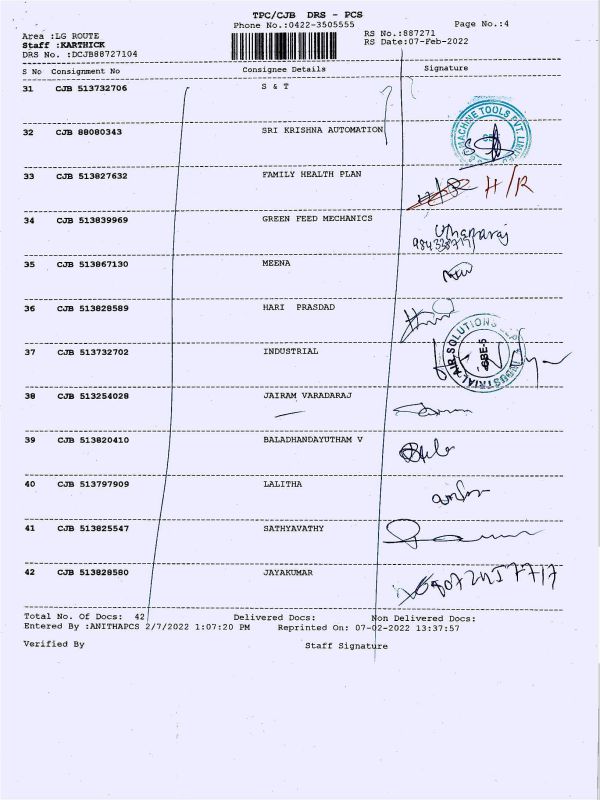 TPC/CJB DRS - PCS
Phone No.:0422-3505555
Page No.:4
Area :LG ROUTE
RS No.:887271
Staff :KARTHICK
RS Date:07-Feb-2022
DRS No. :DCJB88727104
S No Consignment No Consignee Details Signature
31 CJB 513732706 S & T
32 CJB 88080343 SRI KRISHNA AUTOMATION
MACHINE TOOLS PVT.
33 CJB 513827632 FAMILY HEALTH PLAN H/R
34 CJB 513839969 GREEN FEED MECHANICS
35 CJB 513867130 MEENA
36 CJB 513828589 HARI PRASDAD
37 CJB 513732702 INDUSTRIAL
INDUSTRIAL AIR SOLUTIONS
CBE-5
38 CJB 513254028 JAIRAM VARADARAJ
39 CJB 513820410 BALADHANDAYUTHAM V
40 CJB 513797909 LALITHA
41 CJB 513825547 SATHYAVATHY
42 CJB 513828580 JAYAKUMAR
Total No. Of Docs: 42 Delivered Docs: Non Delivered Docs:
Entered By :ANITHAPCS 2/7/2022 1:07:20 PM Reprinted On: 07-02-2022 13:37:57
Verified By Staff Signature